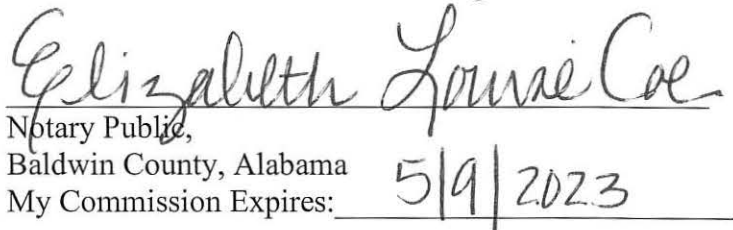 Elizabeth Louise Coe
Notary Public,
Baldwin County, Alabama
My Commission Expires: 5/9/2023